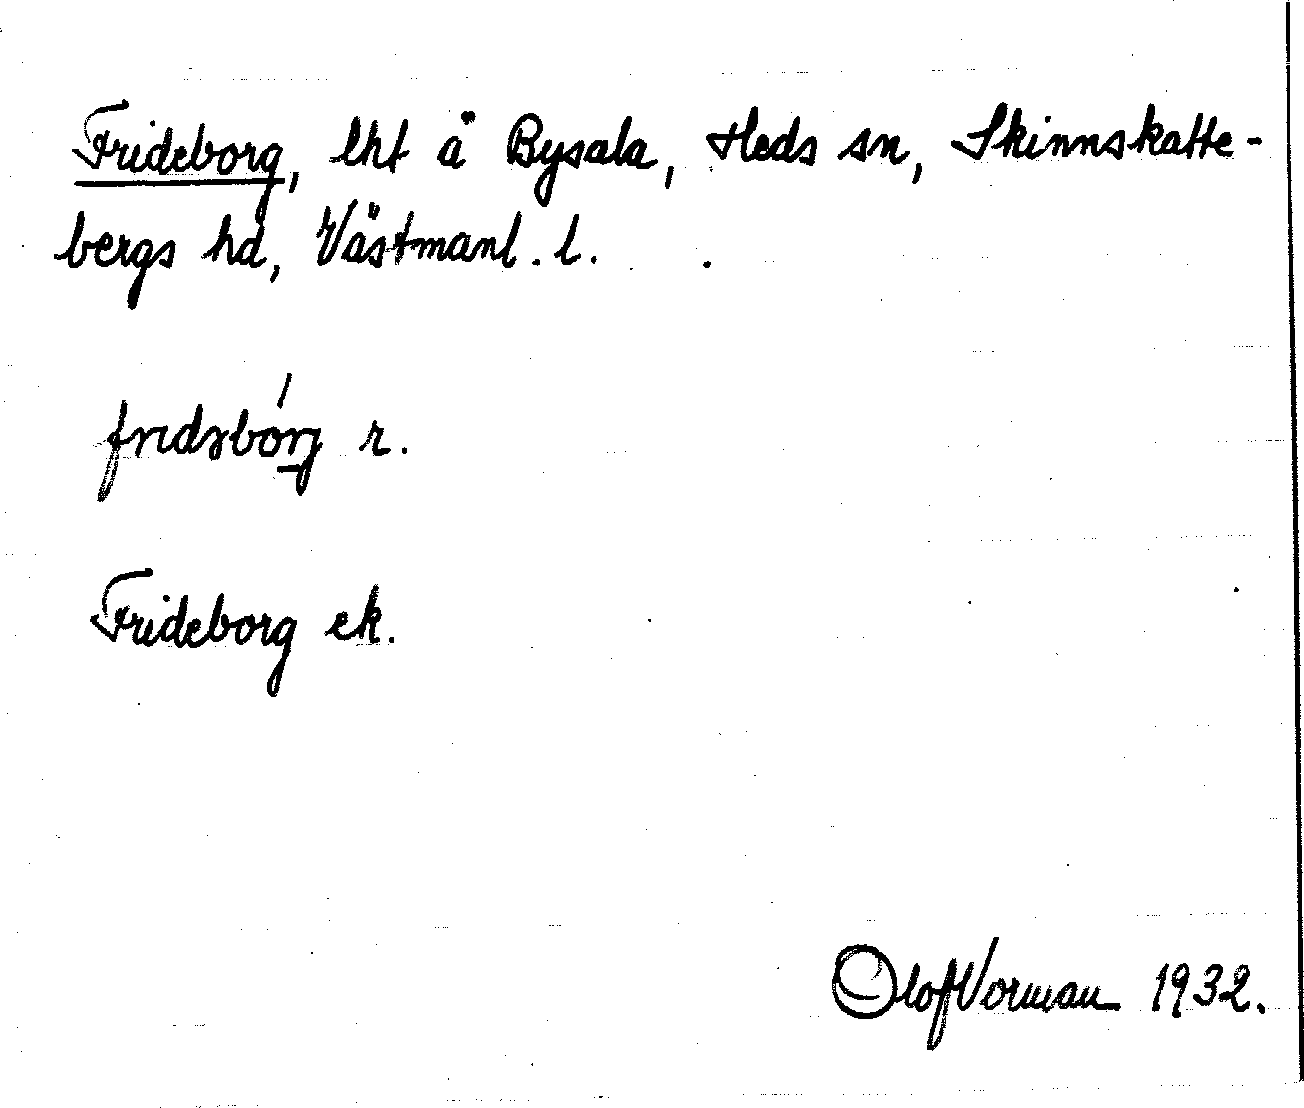 Frideborg, lht å Bysala, Heds sn, Skinnskatte-
bergs hd, Västmanl. l.
r.
Frideborg ek.
Olof Vorman 1932.